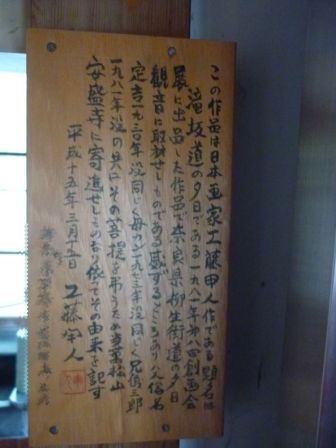 この作品は日本画家工藤甲人作である題名は
滝坂道の夕日である一九八一年第八回創画会
展に出品した作品で奈良県柳生街道の夕日
観音に取材せしものである感ずるところあり父俗名
定吉一九三〇年没同じく母 一九七三年没同じく兄 三郎
一九八一年没の共にその菩提を弔うため 葉松山
安盛寺に寄進せしものなり依ってその由来を記す
平成十五年三月十五日
工藤甲人